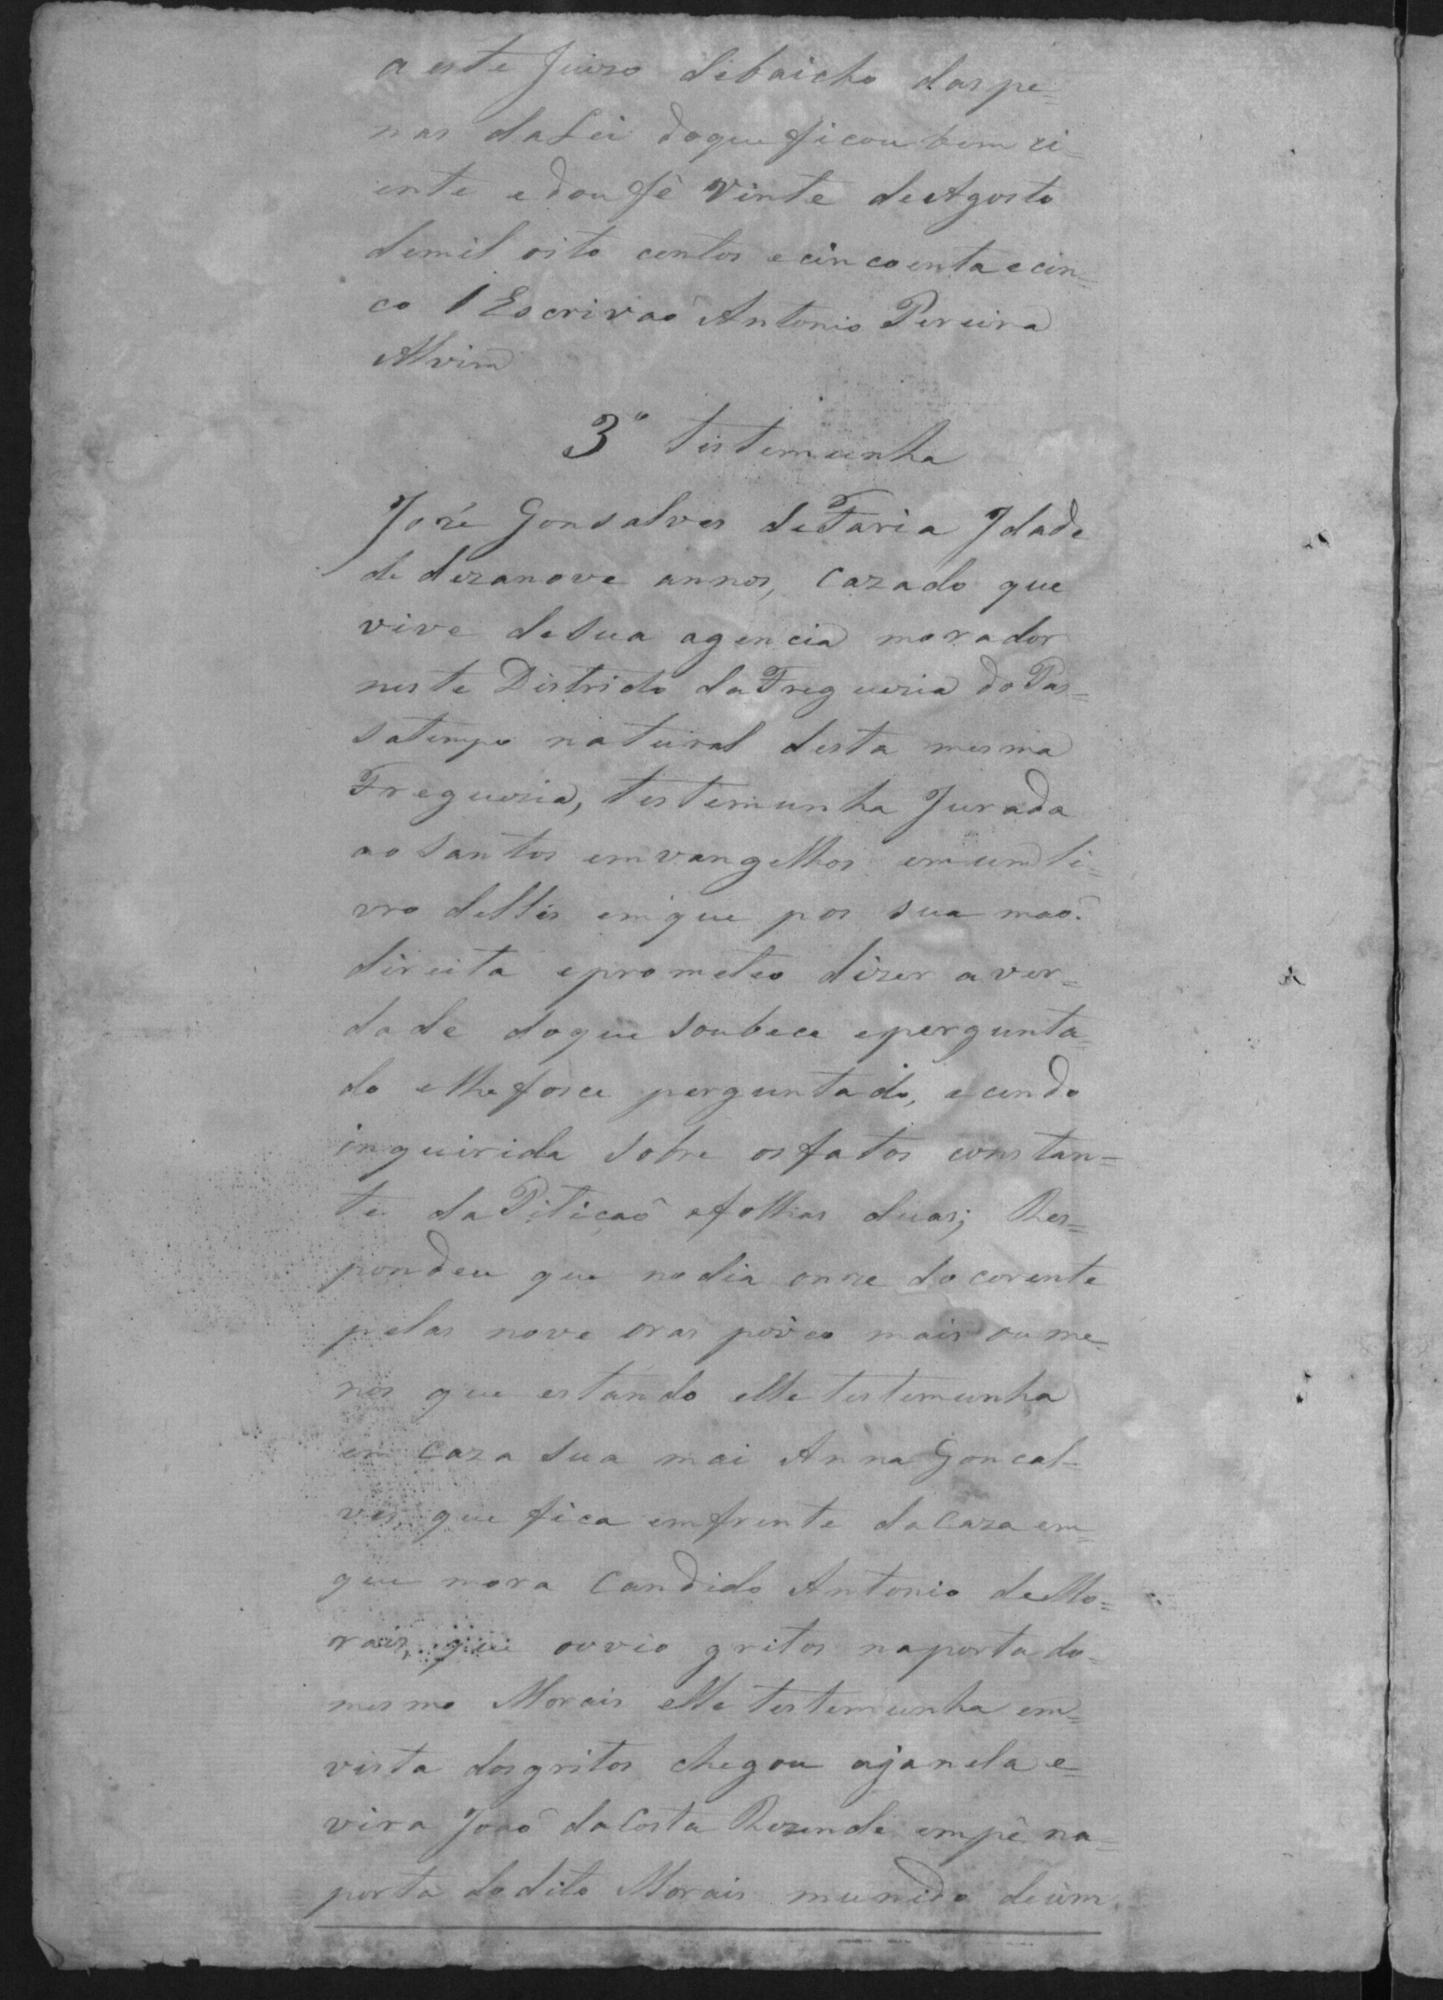 a este Juizo debaicho das pe=
nas da Lei do que ficou bem ci=
ente e dou fé Vinte de Agosto
de mil oito centos e cincoenta e cin=
co O Escrivaõ Antonio Pereira
Alvim
3ª testemunha
José Gonsalves de Faria Idade
de dezanove annos, cazado que
vive de sua agencia morador
neste Districto da Freguezia do Pas=
satempo natural desta mesma
Freguezia, testemunha Jurada
ao Santos emvangelhos em um li=
vro delles em que pos sua maõ
direita e prometeo dizer a ver=
dade do que soubece e pergunta=
do elhe foce perguntado, e cendo
inquirida sobre os fatos constan=
te da Petiçaõ afolhas duas; Res=
pondeu que no dia onze do corente
pelas nove oras pouco mais ou me=
nos que estando elle testemunha
em caza sua mai Anna Goncal=
ves que fica em frente da caza em
que mora Candido Antonio de Mo=
rais, que ouvio gritos na porta do
mesmo Morais elle testemunha em=
vista dos gritos chegou ajanela e=
vira Joaõ da Costa Rezende em pé na=
porta do dito Morais munido de um